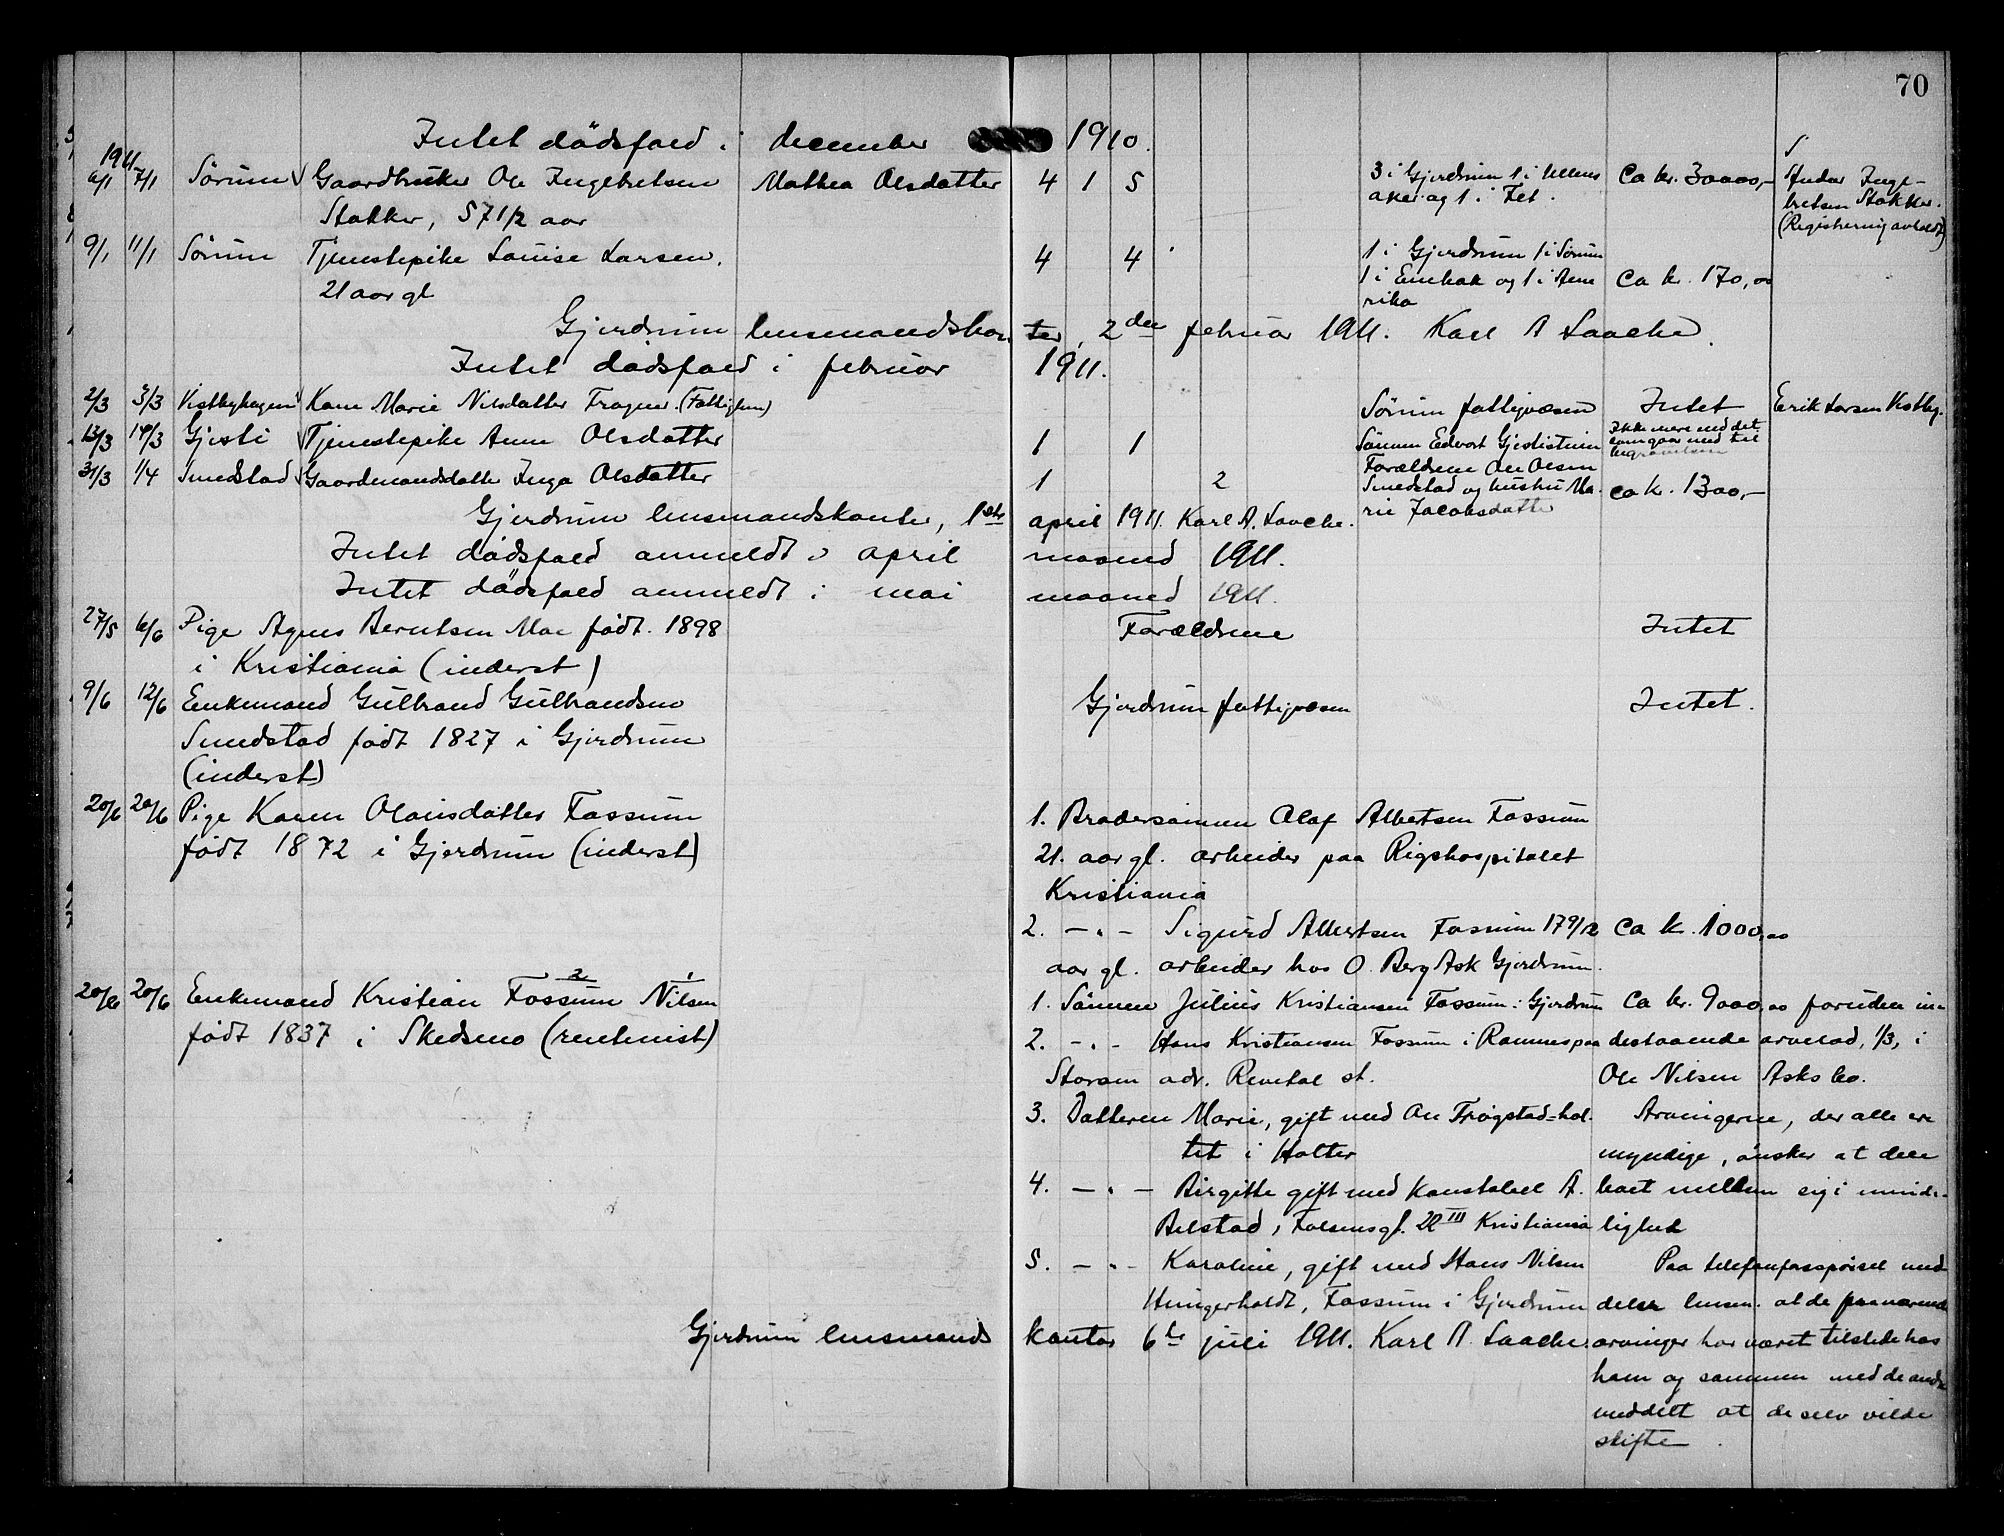 70
Intet dødsfald i december 1910.
1911
6/1 7/1 Sørum Gaardbruker Ole Ingebretsen Mathea Olsdatter 4 1 5 3 i Gjerdrum 1 i Ullens ca kr. 30000,- Andor Inge-
Stakker, 57 1/2 aar aker og 1 i Fet. bretsen Stakker.
(Registrering avholdt)
9/1 11/1 Sørum Tjenestepike Louise Larsen. 4 4 1 i Gjerdrum 1 i Sørum
21 aar gl 1 i Enebak og 1 i Ame ca kr. 170,00
rika
Gjerdrum lensmandskontor, 2den februar 1911. Karl A Laache.
Intet dødsfald i februar 1911.
2/3 3/3 Vestbyhagen Karen Marie Nilsdatter Fragner (Fattiglem) Sørum fattigvæsen Intet Erik Larsen Vestby.
13/3 14/3 Gjesti Tjenestepike Anne Olsdatter 1 1 Sønnen Edvart Gjestisteien Ikke mere end det
som gaar med til
begravelsen
31/3 1/4 Smedstad Gaardmandsdatter Inga Olsdatter 1 2 Forældrene Ole Olsen
Smedstad og hustru Ma- ca kr. 1300,-
rie Jacobsdatter
Gjerdrum lensmandskontor, 1ste april 1911. Karl A. Laache.
Intet dødsfald anmeldt i april maaned 1911.
Intet dødsfald anmeldt i mai maaned 1911.
27/5 6/6 Pige Agnes Berntsen Moe født 1898 Forældrene Intet
i Kristiania (inderst)
9/6 12/6 Enkemand Gulbrand Gulbrandsen Gjerdrum fattigvæsen Intet.
Smedstad født 1827 i Gjerdrum
(inderst)
20/6 20/6 Pige Karen Olausdatter Fossum 1. Brodersønnen Olaf Albertsen Fossum
født 1872 i Gjerdrum (inderst) 21. aar gl. arbeider paa Rigshospitalet
Kristiania
2. -"- Sigurd Albertsen Fossum 17 9/12 ca kr. 1000,00
aar gl. arbeider hos O. Berg Ask Gjerdrum.
20/6 20/6 Enkemand Kristian Fossum Nilsen 1. Sønnen Julius Kristiansen Fossum i Gjerdrum ca kr. 9000,00 foruden in-
2 1
født 1837 i Skedsmo (rentenist) 2. -"- Hans Kristiansen Fossum i Ramnes paa destaaende arvelod, 1/3, i
Storøen adr. Revetal st. Ole Nilsen Asks bo.
3. Datteren Marie, gift med Ole Frøgstad=hol- Arvingerne, der alle er
tet i Holter myndige, ønsker at dele
4. -"- Birgitte gift med konstabel A. boet mellem sig i minde-
Bilstad, Falsensgt. 22 III Kristiania lighed
5. -"- Karoline, gift med Hans Nilsen Paa telefonforespørsel med
Hungerholdt, Fossum i Gjerdrum deler lensm. at de fraværende
Gjerdrum lensmandskontor 6te juli 1911. Karl A. Laache. arvinger har været tilstede hos
ham og sammen med de andre
meddelt at de selv vilde
skifte.